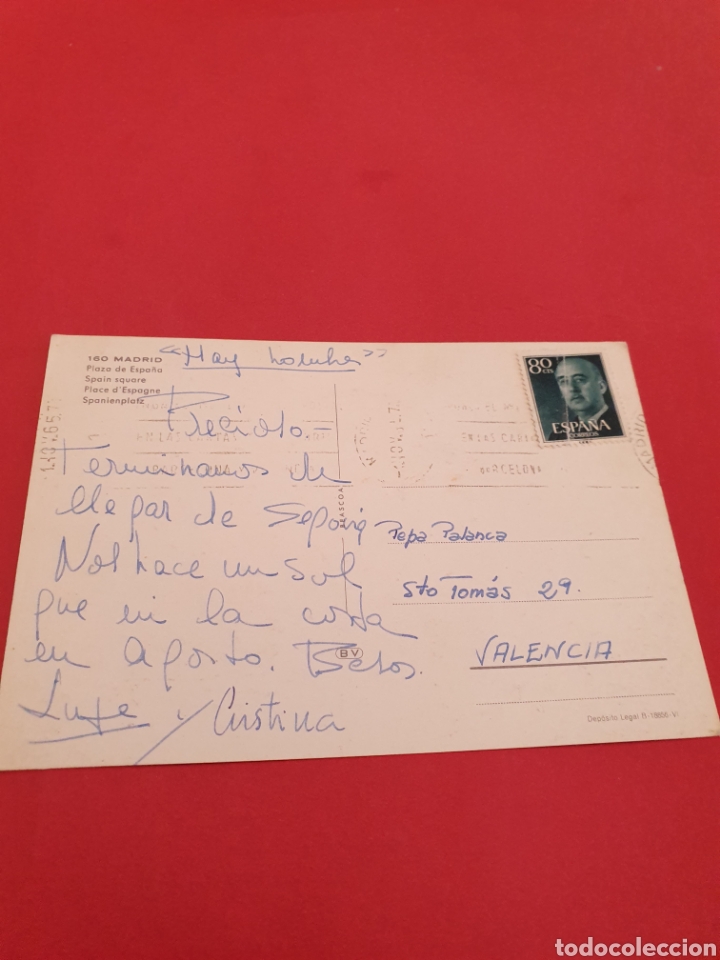 160 MADRID
Plaza de España
Spain square
Place d'Espagne
Spanienplatz
"Hay
Precioso-
Terminamos de
llegar de Segovia
Nos hace un sol
que ni la costa
en Agosto. Besos.
y Cristina
80 CTS
ESPAÑA
CORREOS
EN LAS CARTAS
BARCELONA
Pepa Palanca
Sto Tomás 29.
VALENCIA
BV
Depósito Legal B.
todocoleccion